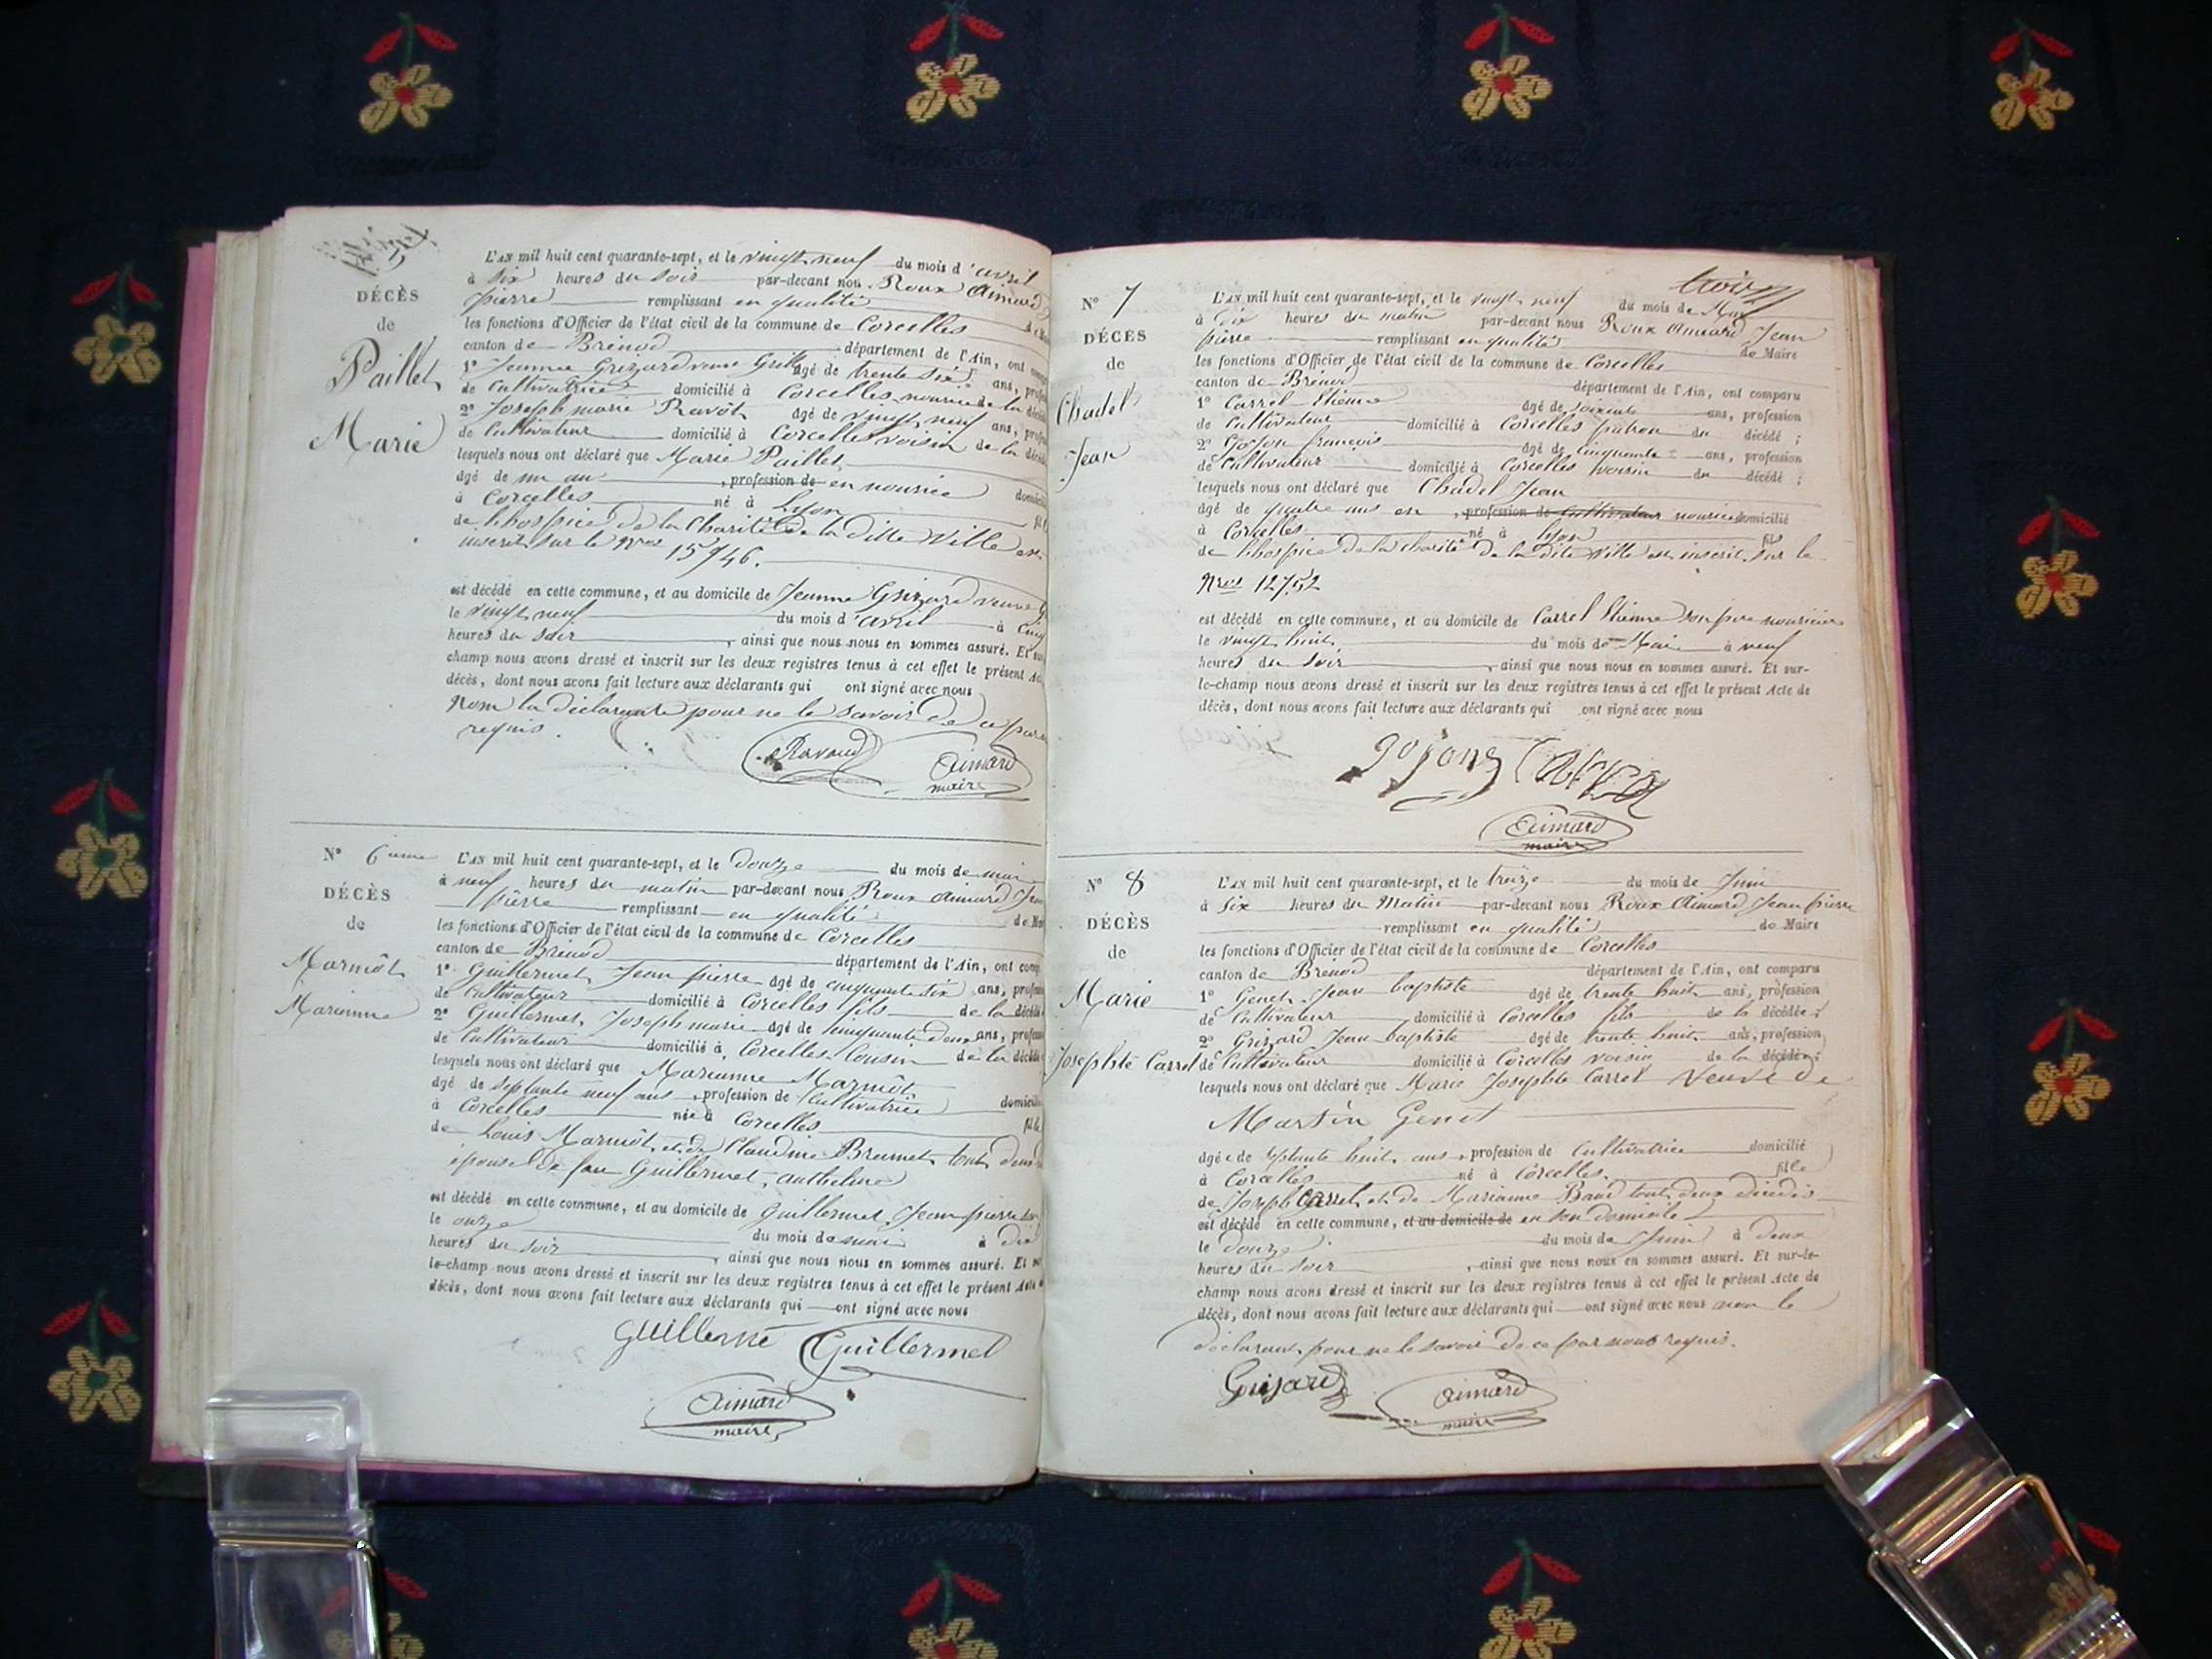 DÉCÈS
de
Paillet
Marie
L'AN mil huit cent quarante-sept, et le vingt neuf du mois d'avril
à six heures du soir par-devant nou Roux Aimard
pierre remplissant en qualité
les fonctions d'Officier de l'état civil de la commune de Corcelles
canton de Brénod département de l'Ain, ont
1° Jeanne Grizard veuve âgé de trente six ans,
de Cultivatrice domicilié à Corcelles nourrice de la
2° Joseph marie Ravôt âgé de vingt neuf ans,
de Cultivateur domicilié à Corcelles voisin de la
lesquels nous ont déclaré que Marie Paillet
âgé de un an , profession de en nourrice
à Corcelles né à Lyon
de Lhospice de la Charité de la ditte Ville
inscrit sur le Nros 15746.
est décédé en cette commune, et au domicile de Jeanne Grizard veuve
le vingt neuf du mois d'avril à cinq
heures du soir , ainsi que nous nous en sommes assuré. Et
champ nous avons dressé et inscrit sur les deux registres tenus à cet effet le présent
décès, dont nous avons fait lecture aux déclarants qui ont signé avec nous
Nom la déclarante pour ne le savoir de ce
requis.
Ravaud Aimard
maire
N° 6eme
DÉCÈS
de
Marmôt
Marianne
L'AN mil huit cent quarante-sept, et le douze du mois de mai
à neuf heures du matin par-devant nous Roux Aimard
pierre remplissant en qualité
les fonctions d'Officier de l'état civil de la commune de Corcelles
canton de Brénod département de l'Ain, ont
1° Guillermet Jean pierre âgé de cinquante six ans,
de Cultivateur domicilié à Corcelles fils de la
2° Guillermet Joseph marie âgé de cinquante deux ans,
de Cultivateur domicilié à Corcelles Cousin de la
lesquels nous ont déclaré que Marianne Marmôt
âgé de septante neuf ans , profession de Cultivatrice
à Corcelles née à Corcelles
de Louis Marmôt et de Claudine Brumet tout deux
épouse de feu Guillermet,
est décédé en cette commune, et au domicile de Guillermet Jean pierre
le onze du mois de mai à
heures du soir , ainsi que nous nous en sommes assuré. Et
le-champ nous avons dressé et inscrit sur les deux registres tenus à cet effet le présent
décès, dont nous avons fait lecture aux déclarants qui ont signé avec nous
guillerme Guillermet
Aimard
maire
trois
N° 7
DÉCÈS
de
Chadel
Jean
L'AN mil huit cent quarante-sept, et le vingt neuf du mois de Mai
à heures du matin par-devant nous Roux Aimard Jean
pierre remplissant en qualité de Maire
les fonctions d'Officier de l'état civil de la commune de Corcelles
canton de Brénod département de l'Ain, ont comparu
1° Carrel Etienne âgé de soixante ans, profession
de Cultivateur domicilié à Corcelles patron du décédé ;
2° Gojon françois âgé de Cinquante ans, profession
de Cultivateur domicilié à Corcelles voisin du décédé ;
lesquels nous ont déclaré que Chadel Jean
âgé de quatre ans en , profession de Cultivateur nourrice domicilié
à Corcelles né à Lyon fils
de Lhospice de la charité de la dite ville est inscrit sur le
Nros 12752
est décédé en cette commune, et au domicile de Carrel Etienne son pere nourricier
le vingt huit du mois de Mai à neuf
heures du soir , ainsi que nous nous en sommes assuré. Et sur-
le-champ nous avons dressé et inscrit sur les deux registres tenus à cet effet le présent Acte de
décès, dont nous avons fait lecture aux déclarants qui ont signé avec nous
gojong
Aimard
maire
N° 8
DÉCÈS
de
Marie
Josephte Carrel
L'AN mil huit cent quarante-sept, et le treize du mois de Juin
à six heures du Matin par-devant nous Roux Aimard Jean pierre
remplissant en qualité de Maire
les fonctions d'Officier de l'état civil de la commune de Corcelles
canton de Brénod département de l'Ain, ont comparu
1° Genet Jean baptiste âgé de trente huit ans, profession
de Cultivateur domicilié à Corcelles fils de la décédée ;
2° Grizard Jean baptiste âgé de trente huit ans, profession
de Cultivateur domicilié à Corcelles voisin de la décédée ;
lesquels nous ont déclaré que Marie Josephte Carrel Veuve de
Martin Genet
âgée de septante huit ans , profession de Cultivatrice domicilié
à Corcelles né à Corcelles. fille
de Joseph Carrel et de Marianne Baud tout deux décédés
est décédé en cette commune, et au domicile de en son domicile
le douze du mois de Juin à deux
heures du soir , ainsi que nous nous en sommes assuré. Et sur-le-
champ nous avons dressé et inscrit sur les deux registres tenus à cet effet le présent Acte de
décès, dont nous avons fait lecture aux déclarants qui ont signé avec nous non le
déclarant pour ne le savoir de ce par nous requis.
Grisard Aimard
maire